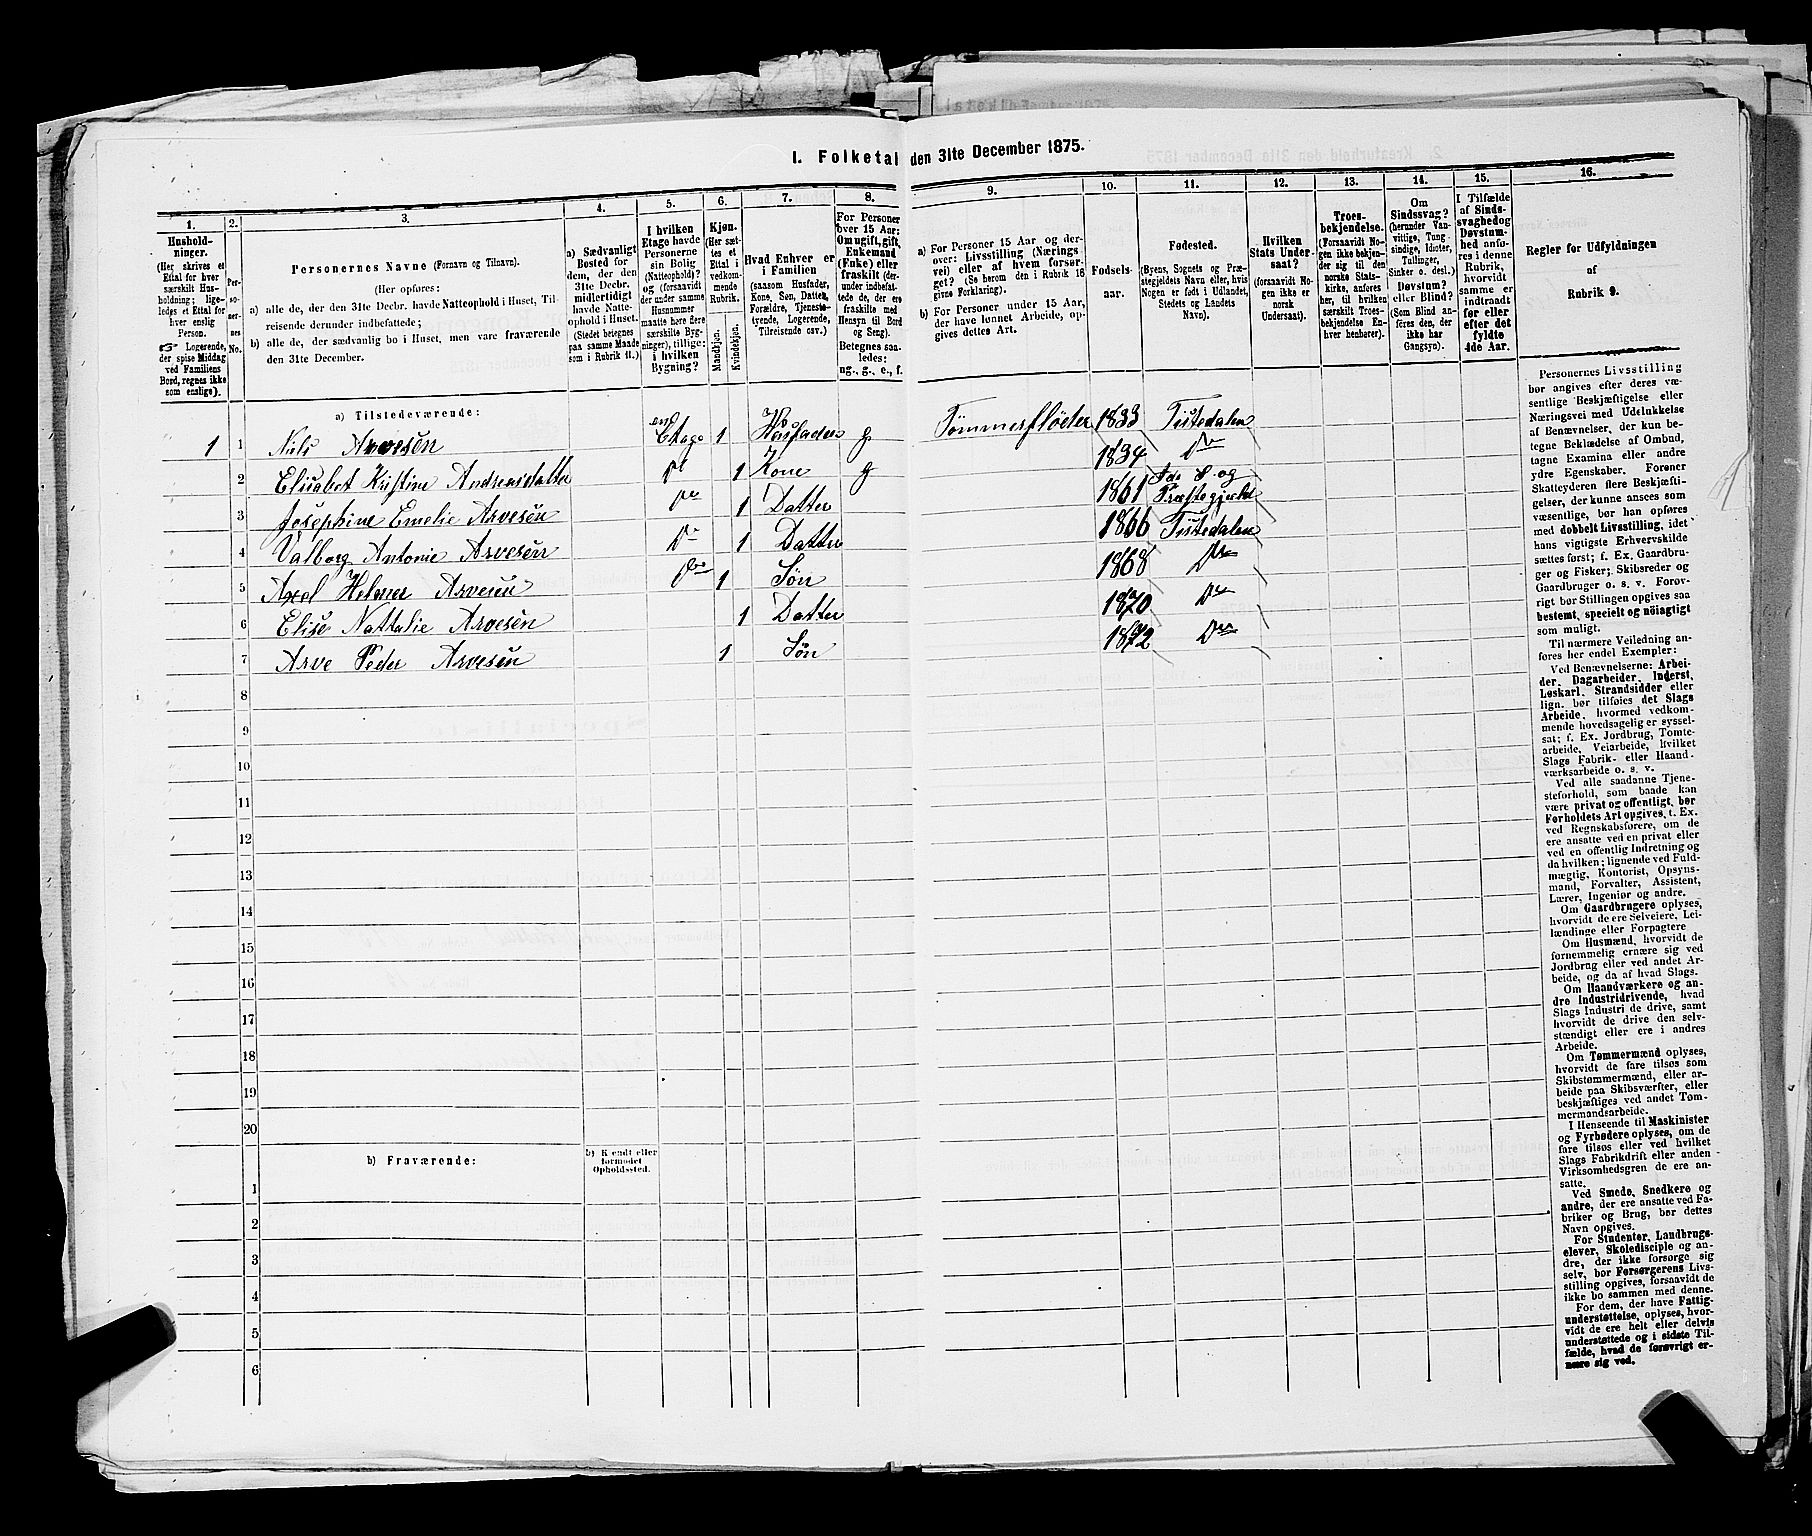 I. Folketal den 31te December 1875.
1. 2. 3. 4. 5. 6. 7. 8. 9. 10. 11. 12. 13. 14. 15. 16.
Husholdninger.
(Her skrives et
Ettal for hver
særskilt Husholdning;
ligeledes et Ettal for
hver enslig
Person.
Logerende,
der spise Middag
ved Familiens
Bord, regnes ikke
som enslige).
Personernes No.
Personernes Navne (Fornavn og Tilnavn).
(Her opføres:
a) alle de, der den 31te Decbr. havde Natteophold i Huset, Tilreisende derunder indbefattede;
b) alle de, der sædvanlig bo i Huset, men vare fraværende
den 31te December.
a) Sædvanligt
Bosted for
dem, der den
31te Decbr.
midlertidigt
havde Natteophold i Huset.
(Stedet betegnes
paa samme Maade
som i Rubrik 11.)
I hvilken
Etage havde
Personerne
sin Bolig
(Natteophold)?
og (forsaavidt
der under samme
Husnummer
maatte høre flere
særskilte Bygninger), tillige:
i hvilken
Bygning?
Kjøn.
(Her sættes et
Ettal i
vedkommende
Rubrik.
Mandkjøn.
Kvindekjøn.
Hvad Enhver er
i Familien
(saasom Husfader,
Kone, Søn, Datter,
Forældre, Tjenestetyende, Logerende,
Tilreisende osv.)
For Personer
over 15 Aar:
Om ugift, gift,
Enkemand
(Enke) eller
fraskilt (derunder indbefattede, de, der ere
fraskilte med
Hensyn til Bord
og Seng).
Betegnes saaledes:
ug., g., e., f.
a) For Personer 15 Aar og derover: Livsstilling (Næringsvei) eller af hvem forsørget? (Se herom den i Rubrik 16
givne Forklaring).
b) For Personer under 15 Aar,
der have lønnet Arbeide, opgives dettes Art.
Fødselsaar.
Fødested.
(Byens, Sognets og Præstegjeldets Navn eller, hvis
Nogen er født i Udlandet,
Stedets og Landets
Navn).
Hvilken
Stats Undersaat?
(forsaavidt Nogen ikke er
norsk
Undersaat).
Troesbekjendelse.
(Forsaavidt Nogen ikke bekjender sig til den
norske Statskirke, anføres
her, til hvilken
særskilt Troesbekjendelse Enhver henhører).
Om
Sindssvag?
(herunder Vanvittige, Tungsindige, Idioter,
Tullinger,
Sinker o. desl.)
Døvstum?
eller Blind?
(Som Blind anføres den, der
ikke har
Gangsyn).
I Tilfælde
af Sindssvaghed og
Døvstumhed anføres i denne
Rubrik,
hvorvidt
samme er
indtraadt
før eller
efter det
fyldte
4de Aar.
Regler for Udfyldningen
af
Rubrik 9.
a) Tilstedeværende:
1 1 Nils Arvesen en Etage 1 Husfader g Tømmerfløder 1833 Tistedalen
2 Elisabet Kristine Andreasdatter Do 1 Kone g 1834 Do
3 Josephine Emelie Arvesen Do 1 Datter 1861 Ids S. og Præstegjeld
4 Valborg Antonie Arvesen Do 1 Datter 1866 Tistedalen
5 Axel Helmer Arvesen Do 1 Søn 1868 Do
6 Elise Nattalie Arvesen 1 Datter 1870 Do
7 Arve Peder Arvesen 1 Søn 1872 Do
8
9
10
11
12
13
14
15
16
17
18
19
20
b) Fraværende:
b) Kjendt eller
formodet
Opholdssted.
1
2
3
4
5
6
Personernes Livsstilling
bør angives efter deres væsentlige Beskjæftigelse eller
Næringsvei med Udelukkelse
af Benævnelser, der kun betegne Beklædelse af Ombud,
tagne Examina eller andre
ydre Egenskaber. Forener
Skatteyderen flere Beskjæftigelser, der kunne ansees som
væsentlige, bør han opføres
med dobbelt Livsstilling, idet
hans vigtigste Erhvervskilde
sættes først; f. Ex. Gaardbruger og Fisker; Skibsreder og
Gaardbruger o. s. v. Forøvrigt bør Stillingen opgives saa
bestemt, specielt og nøiagtigt
som muligt.
Til nærmere Veiledning anføres her endel Exempler:
Ved Benævnelserne: Arbeider, Dagarbeider, Inderst,
Løskarl, Strandsidder eller
lign. bør tilføies det Slags
Arbeide, hvormed vedkommende hovedsagelig er sysselsat; f. Ex. Jordbrug, Tomtearbeide, Veiarbeide, hvilket
Slags Fabrik- eller Haandværksarbeide o. s. v.
Ved alle saadanne Tjenesteforhold, som baade kan
være privat og offentligt, bør
Forholdets Art opgives, t. Ex.
ved Regnskabsførere, om de
ere ansatte ved en privat eller
ved en offentlig Indretning og
da hvilken; lignende ved Fuldmægtig, Kontorist, Opsynsmand, Forvalter, Assistent,
Lærer, Ingeniør og andre.
Om Gaardbrugere oplyses,
hvorvidt de ere Selveiere, Leilændinge eller Forpagtere
Om Husmænd, hvorvidt de
fornemmelig ernære sig ved
Jordbrug eller ved andet Arbeide, og da af hvad Slags.
Om Haandværkere og andre Industridrivende, hvad
Slags Industri de drive, samt
hvorvidt de drive den selvstændigt eller ere i andres
Arbeide.
Om Tømmermænd oplyses,
hvorvidt de fare tilsøs som
Skibstømmermænd, eller arbeide paa Skibsværfter, eller
beskjæftiges ved andet Tømmermandsarbeide.
I Henseende til Maskinister
og Fyrbødere oplyses, om de
fare tilsøs eller ved hvilket
Slags Fabrikdrift eller anden
Virksomhedsgren de ere ansatte.
Ved Smede, Snedkere og
andre, der ere ansatte ved Fabriker og Brug, bør dettes
Navn opgives.
For Studenter, Landbrugselever, Skoledisciple og andre, der ikke forsørge sig
selv, bør Forsørgerens Livsstilling opgives, forsaavidt de
ikke bo sammen med denne.
For dem, der have Fattigunderstøttelse, oplyses, hvorvidt de ere helt eller delvis
understøttede og i sidste Tilfælde, hvad de forøvrigt ernære sig ved.